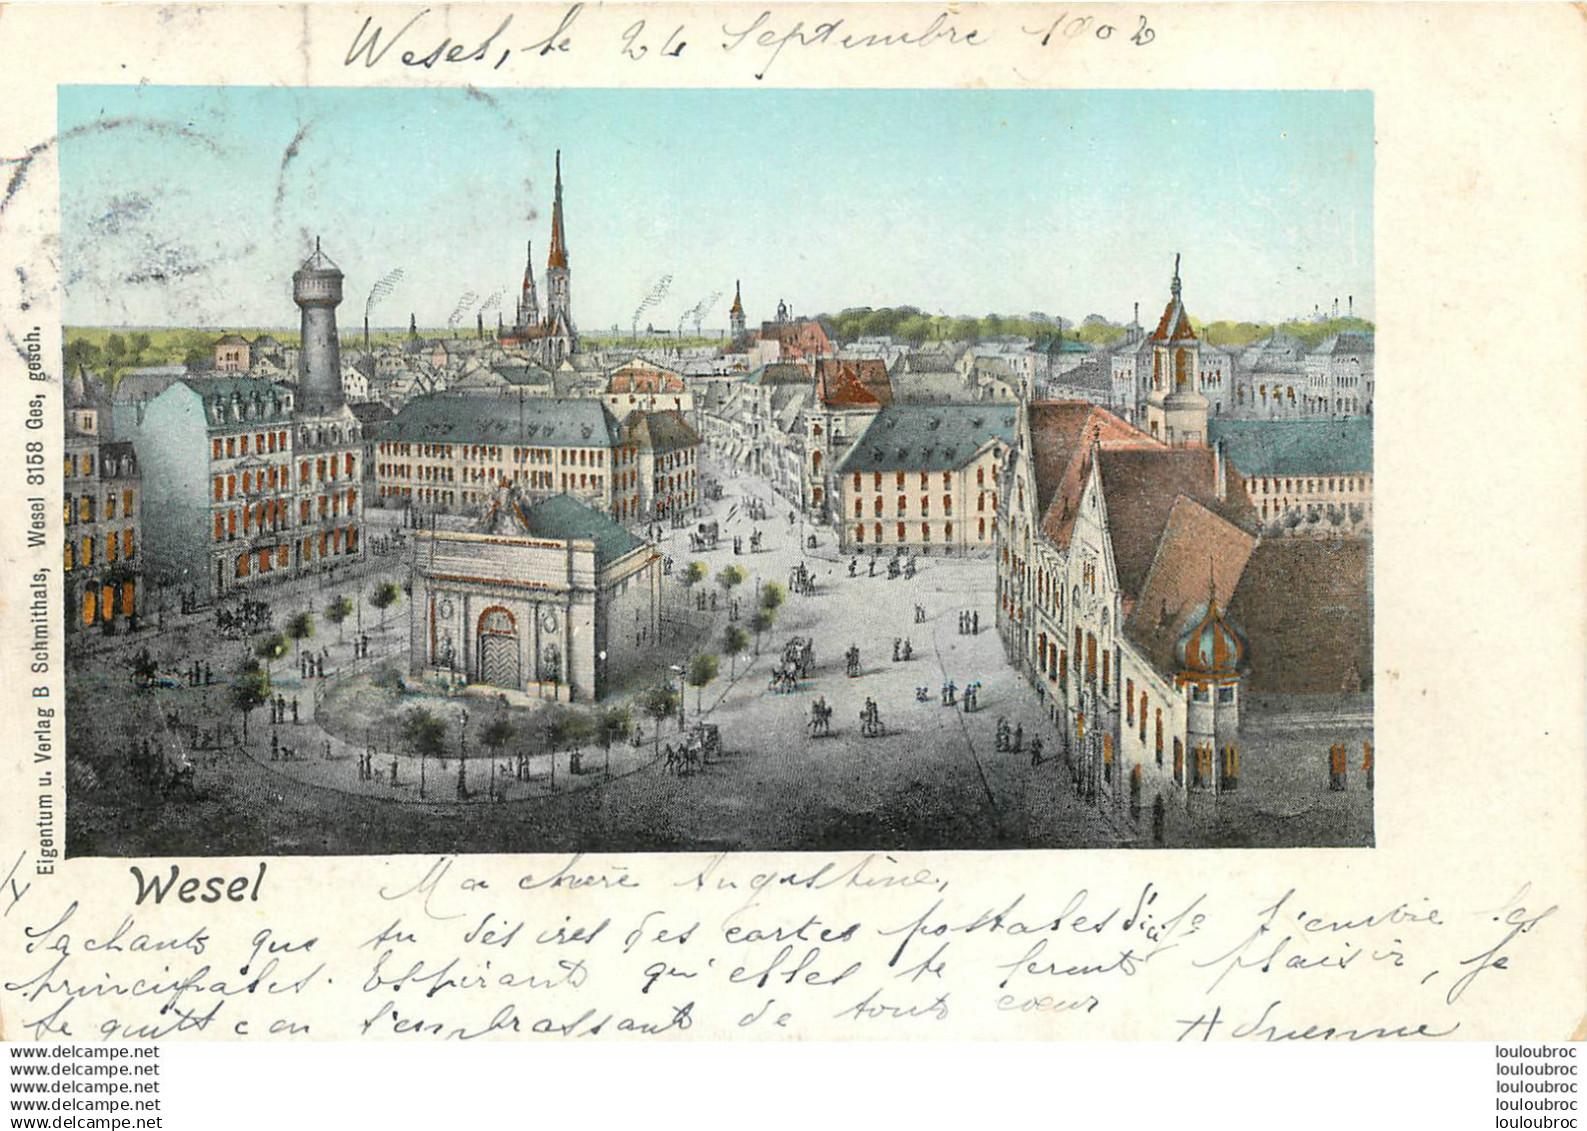 Wesel, le 24 Septembre 1902
Eigentum u. Verlag B Schmithals, Wesel 3158 Ges. gesch.
Wesel
Ma chère Augustine,
Sachants que tu désires des cartes postales d'ici je t'envoie les
principales. Espérants qu'elles te feront plaisir, je
te quitte en t'embrassants de touts coeur
www.delcampe.net
www.delcampe.net
www.delcampe.net
www.delcampe.net
www.delcampe.net
louloubroc
louloubroc
louloubroc
louloubroc
louloubroc